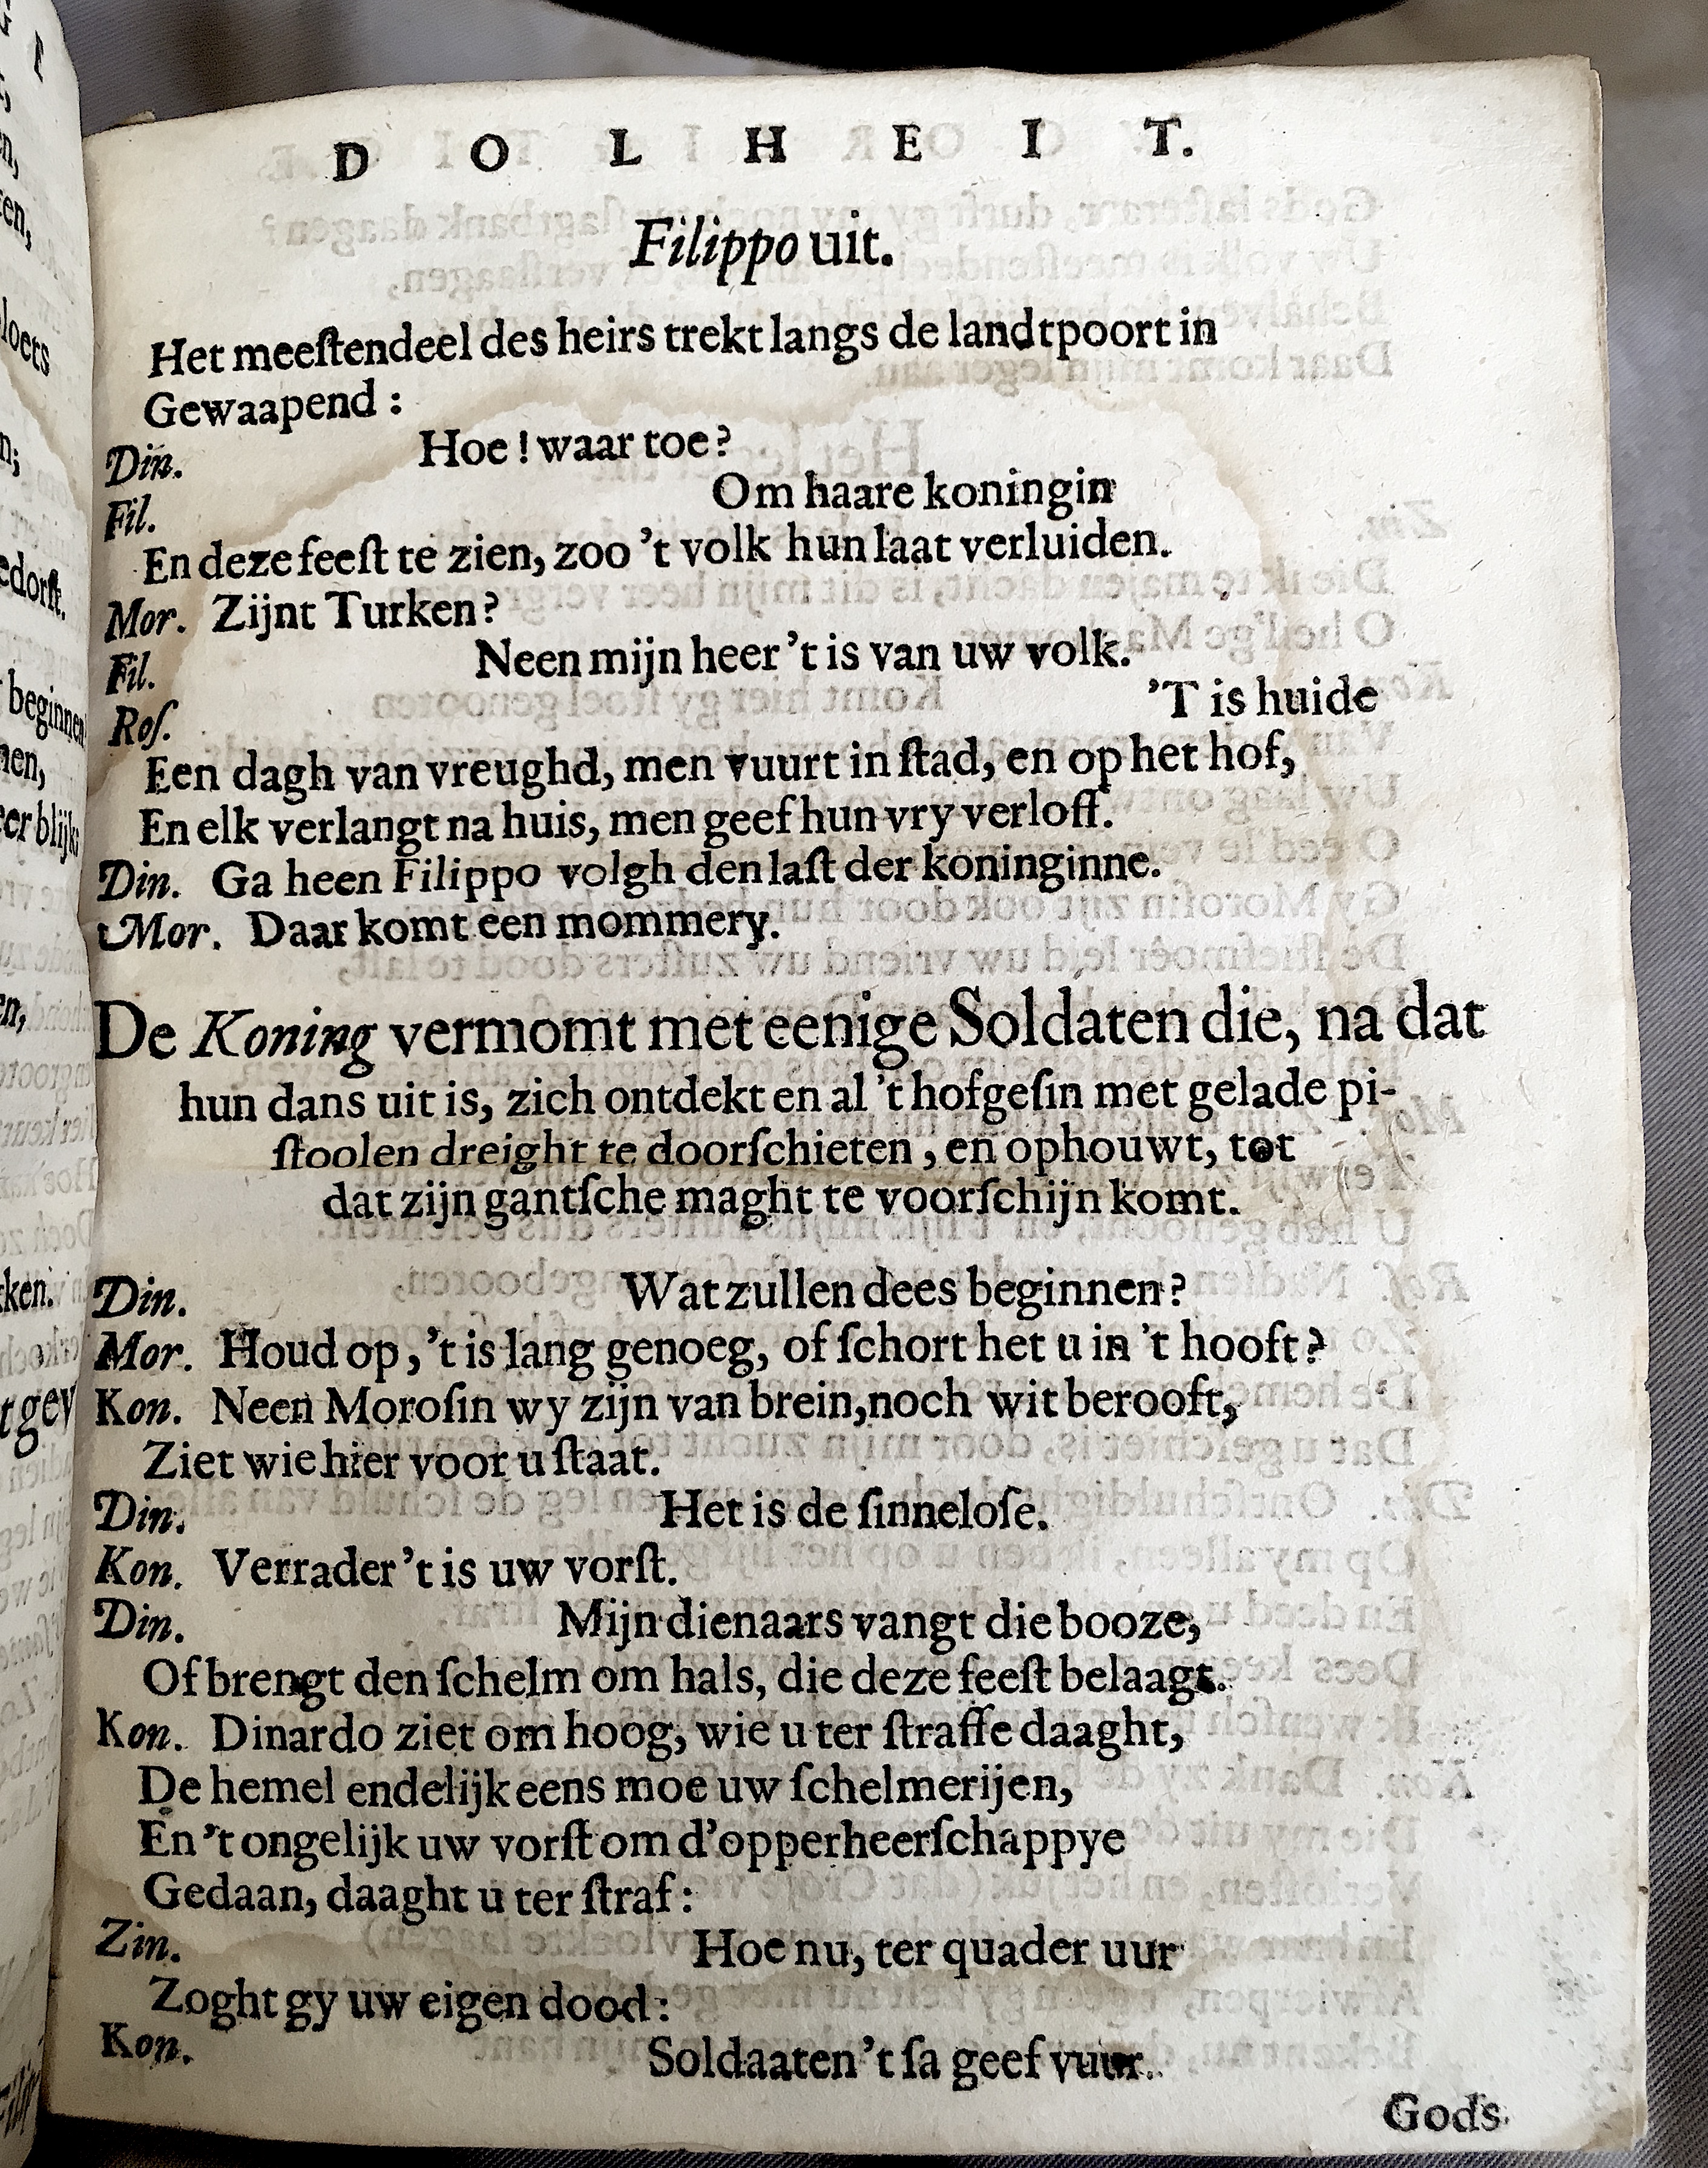 D O L H E I T.
Filippo uit.
Het meeſtendeel des heirs trekt langs de landtpoort in
Gewaapend :
Din. Hoe ! waar toe?
Fil. Om haare koningin
En deze feeſt te zien, zoo 't volk hun laat verluiden.
Mor. Zijnt Turken?
Fil. Neen mijn heer 't is van uw volk.
Roſ. 'T is huide
Een dagh van vreughd, men vuurt in ſtad, en op het hof,
En elk verlangt na huis, men geef hun vry verloff.
Din. Ga heen Filippo volgh den laſt der koninginne.
Mor. Daar komt een mommery.
De Koning vermomt met eenige Soldaten die, na dat
hun dans uit is, zich ontdekt en al 't hofgeſin met gelade pi-
ſtoolen dreight te doorſchieten, en ophouwt, tot
dat zijn gantſche maght te voorſchijn komt.
Din. Wat zullen dees beginnen?
Mor. Houd op, 't is lang genoeg, of ſchort het u in 't hooft?
Kon. Neen Moroſin wy zijn van brein, noch wit berooft,
Ziet wie hier voor u ſtaat.
Din. Het is de ſinneloſe.
Kon. Verrader 't is uw vorſt.
Din. Mijn dienaars vangt die booze,
Of brengt den ſchelm om hals, die deze feeſt belaagt.
Kon. Dinardo ziet om hoog, wie u ter ſtraffe daaght,
De hemel endelijk eens moe uw ſchelmerijen,
En 't ongelijk uw vorſt om d'opperheerſchappye
Gedaan, daaght u ter ſtraf :
Zin. Hoe nu, ter quader uur
Zoght gy uw eigen dood :
Kon. Soldaaten 't ſa geef vuur.
Gods